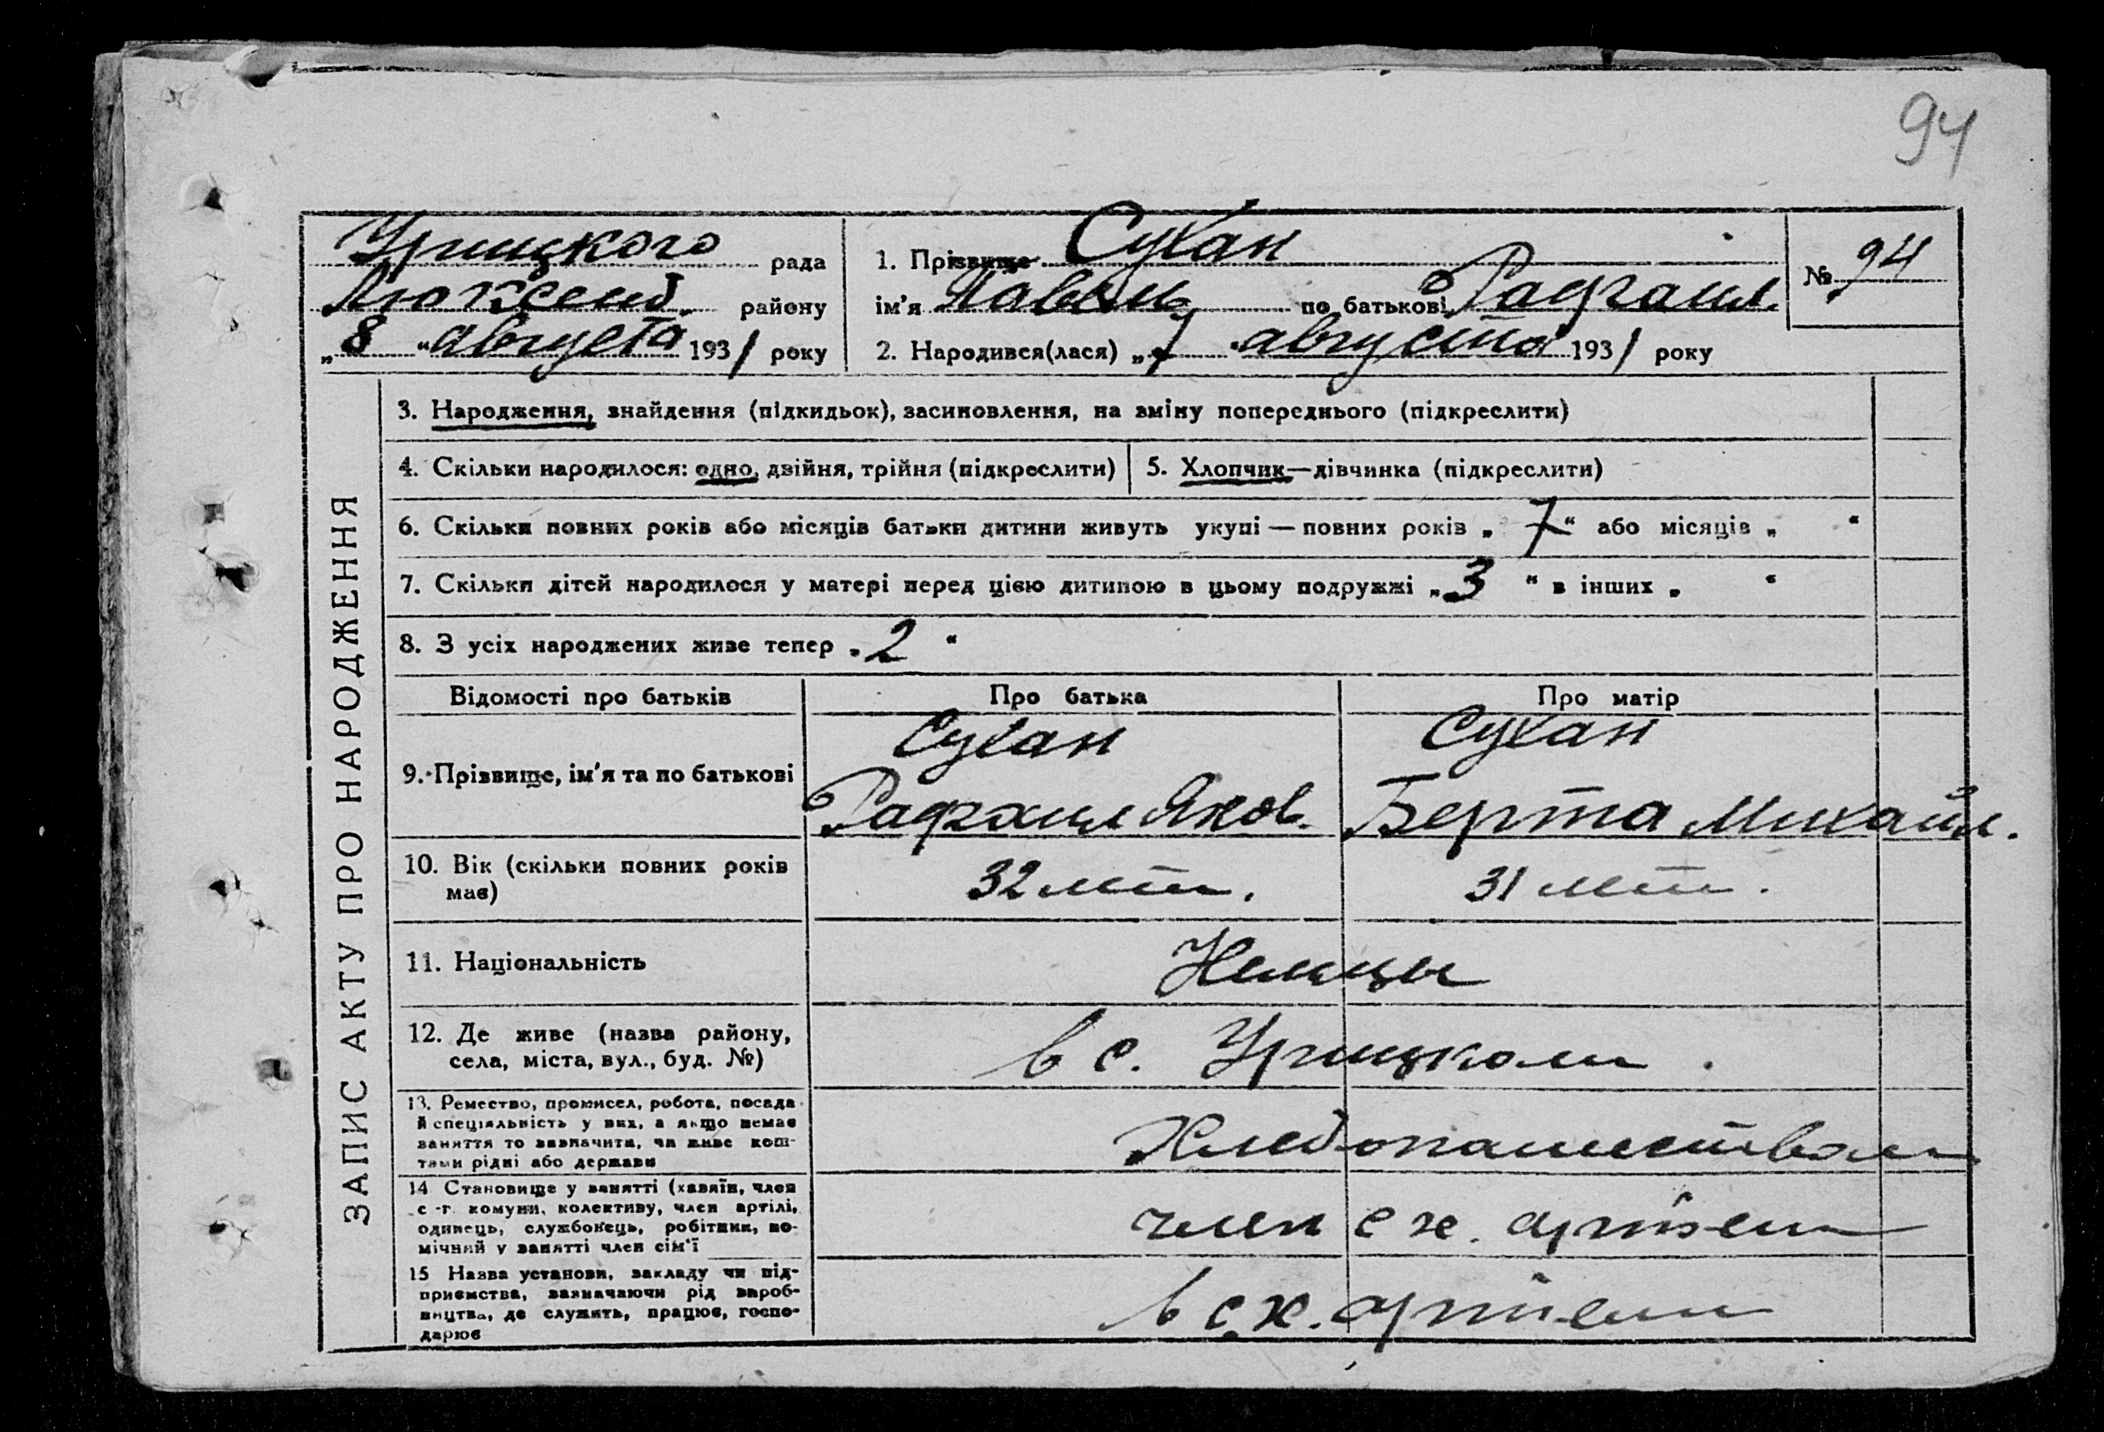 94
Урицкого рада
Люксемб. району
„8“ августа 1931 року
1. Прізвище Сухан
ім'я Павель по батькові Рафаил.
№ 94
2. Народився(лася) „7“ августа 1931 року
ЗАПИС АКТУ ПРО НАРОДЖЕННЯ
3. Народження, знайдення (підкидьок), засиновлення, на зміну попереднього (підкреслити)
4. Скільки народилося: одно, двійня, трійня (підкреслити)
5. Хлопчик—дівчинка (підкреслити)
6. Скільки повних років або місяців батьки дитини живуть укупі — повних років „7“ або місяців „ “
7. Скільки дітей народилося у матері перед цією дитиною в цьому подружжі „3“ в інших „ “
8. З усіх народжених живе тепер „2“
Відомості про батьків Про батька Про матір
9. Прізвище, ім'я та по батькові
Сухан
Рафаил Яков.
Сухан
Берта Михайл.
10. Вік (скільки повних років
має)
32 лет.
31 лет.
11. Національність
Немцы
12. Де живе (назва району,
села, міста, вул., буд. №)
в с. Урицком.
13. Ремество, промисел, робота, посада
й спеціяльність у них, а якщо немає
заняття то зазначити, чи живе кош-
тами рідні або держави
Хлебопашеством
14 Становище у занятті (хазяїн, член
с.-г. комуни, колективу, член артілі,
одинець, службовець, робітник, по-
мічний у занятті член сім'ї
член с х. артели
15 Назва установи, закладу чи під-
приємства, зазначаючи рід вироб-
ництва, де служить, працює, госпо-
дарює
в с.х. артели